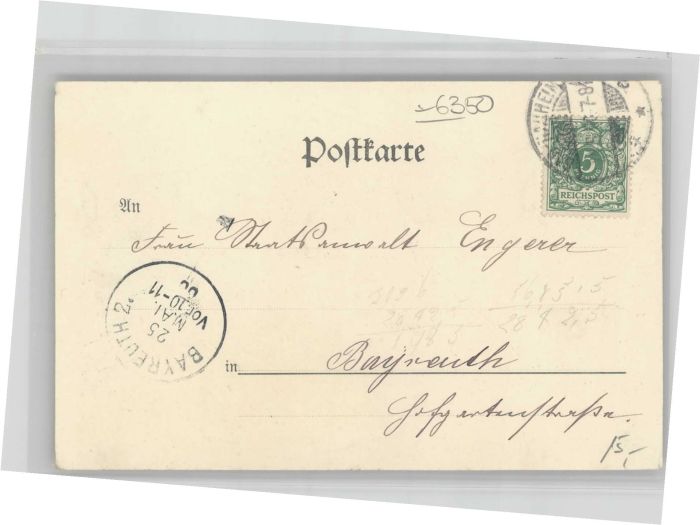 -6350
Postkarte
5
REICHSPOST
7-8
An
Frau Staatsanwalt Engerer
BAYREUTH 2.
25
MAI.
Vor.10-11
00
in Bayreuth
Hofgartenstraße.
15,-